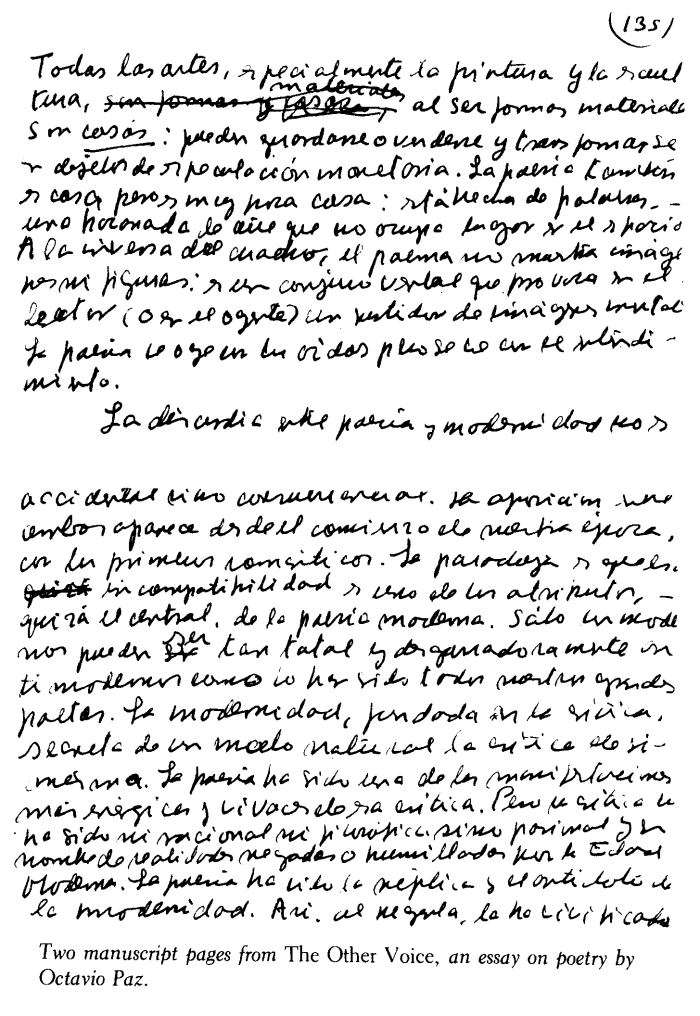 (135)
Todas las artes, especialmente la pintura y la escul
tura, son formas y cosas, materiales al ser formas materiales
son cosas: pueden guardarse o venderse y transformarse
en objetos de especulación monetaria. La poesía también
es cosa pero es muy poca cosa: está hecha de palabras, -
una bocanada de aire que no ocupa lugar en el espacio
A la inversa del cuadro, el poema no muestra imáge
nes ni figuras: es un conjuro verbal que provoca en el
lector (o en el oyente) un surtidor de imágenes mentales
La poesía se oye con los oídos pero se ve con el entendi-
miento.
La discordia entre poesía y modernidad no es
accidental sino consustancial. La oposición entre
ambos aparece desde el comienzo de nuestra época,
con los primeros románticos. La paradoja es que esa
incompatibilidad es uno de los atributos, -
quizá el central, de la poesía moderna. Sólo los moder
nos pueden ser tan total y desgarradoramente an
timodernos como lo han sido todos nuestros grandes
poetas. La modernidad, fundada en la crítica,
secreta de un modo natural la crítica de sí-
misma. La poesía ha sido una de las manifestaciones
más enérgicas y vivaces de esa crítica. Pero su crítica no
ha sido ni racional ni filosófica sino pasional y en
nombre de realidades negadas o humilladas por la Edad
Moderna. La poesía ha sido la réplica y el antídoto de
la modernidad. Así, al negarla, la ha vivificado
Two manuscript pages from The Other Voice, an essay on poetry by
Octavio Paz.